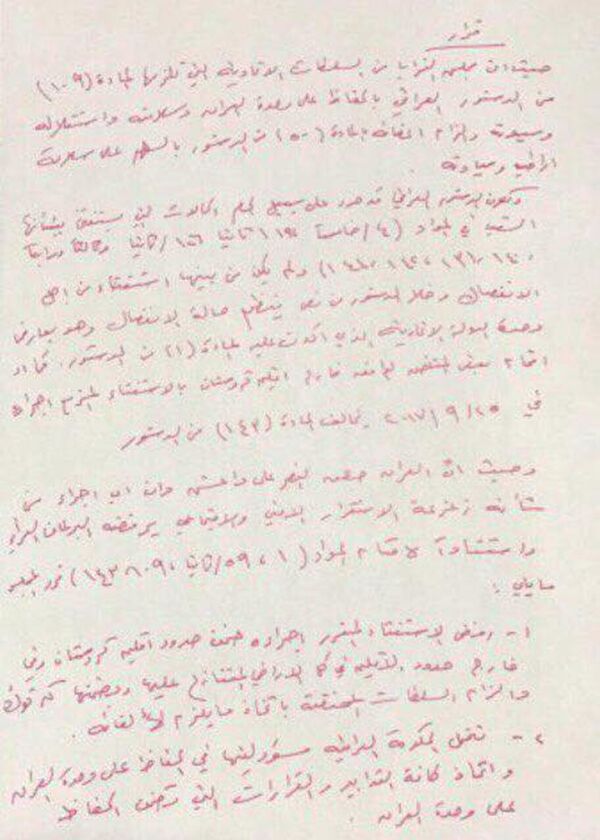 قرار
حيث ان مجلس النواب من السلطات الاتحادية التي تلزمها المادة (١٠٩)
من الدستور العراقي بالحفاظ على وحدة العراق وسلامته واستقلاله
وسيادته والزام المادة (٥٠) من الدستور بالسهر على سلامة
اراضيه وسيادته .
ولكون الدستور العراقي قد حدد على سبيل الحصر الحالات التي يستفتى بشأنها
الشعب في المواد (٤/خامساً ١١٩، ١٢٦/ثانياً وثالثاً ورابعاً
١٣١، ١٤٠، ١٤٢، ) ولم يكن من بينها استفتاء من اجل
الانفصال وخلا الدستور من نص ينظم حالة الانفصال وهو يعارض
وحدة الدولة الاتحادية الذي اكدت عليه المادة (١) من الدستور، كما ان
اقحام بعض المناطق خارج اقليم كردستان بالاستفتاء المزمع اجراؤه
في ٢٥/٩/٢٠١٧ يخالف المادة (١٤٣) من الدستور
وحيث ان العراق حقق النصر على داعش وان اي اجراء من
شأنه زعزعة الاستقرار الامني والاجتماعي يرفضه البرلمان
واستناداً لاحكام المواد (١، ٥٩/ثانياً، ١٠٩، ١٤٣) قرر المجلس
مايلي :
١- رفض الاستفتاء المقرر اجراؤه ضمن حدود اقليم كردستان وفي
خارج حدود الاقليم في كل الاراضي المتنازع عليها وضمنها كركوك
والزام السلطات باتخاذ مايلزم لالغائه .
٢- تتحمل الحكومة العراقية مسؤوليتها في الحفاظ على وحدة العراق
واتخاذ كافة التدابير والقرارات التي تضمن الحفاظ
على وحدة العراق .